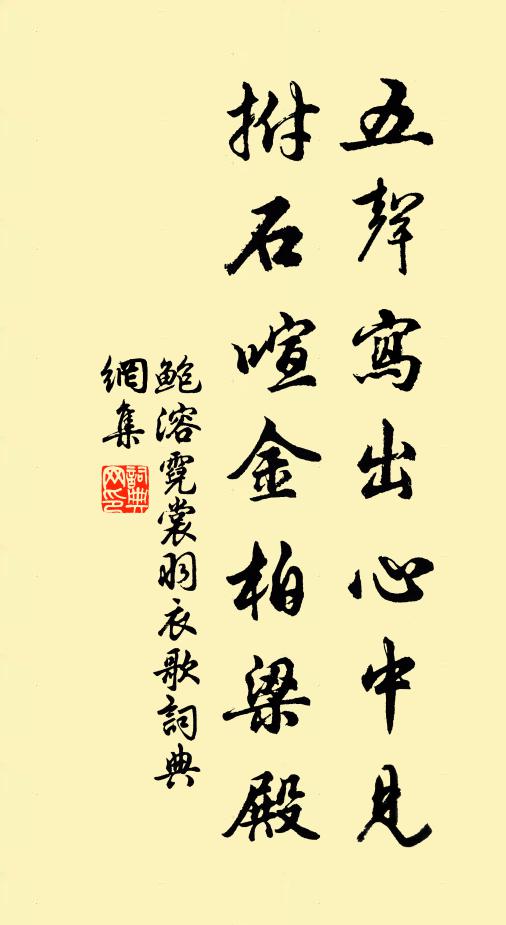 五聲寫出心中見
拊石喧金柏梁殿
鮑溶霓裳羽衣歌詞典
網集
詞典
網印